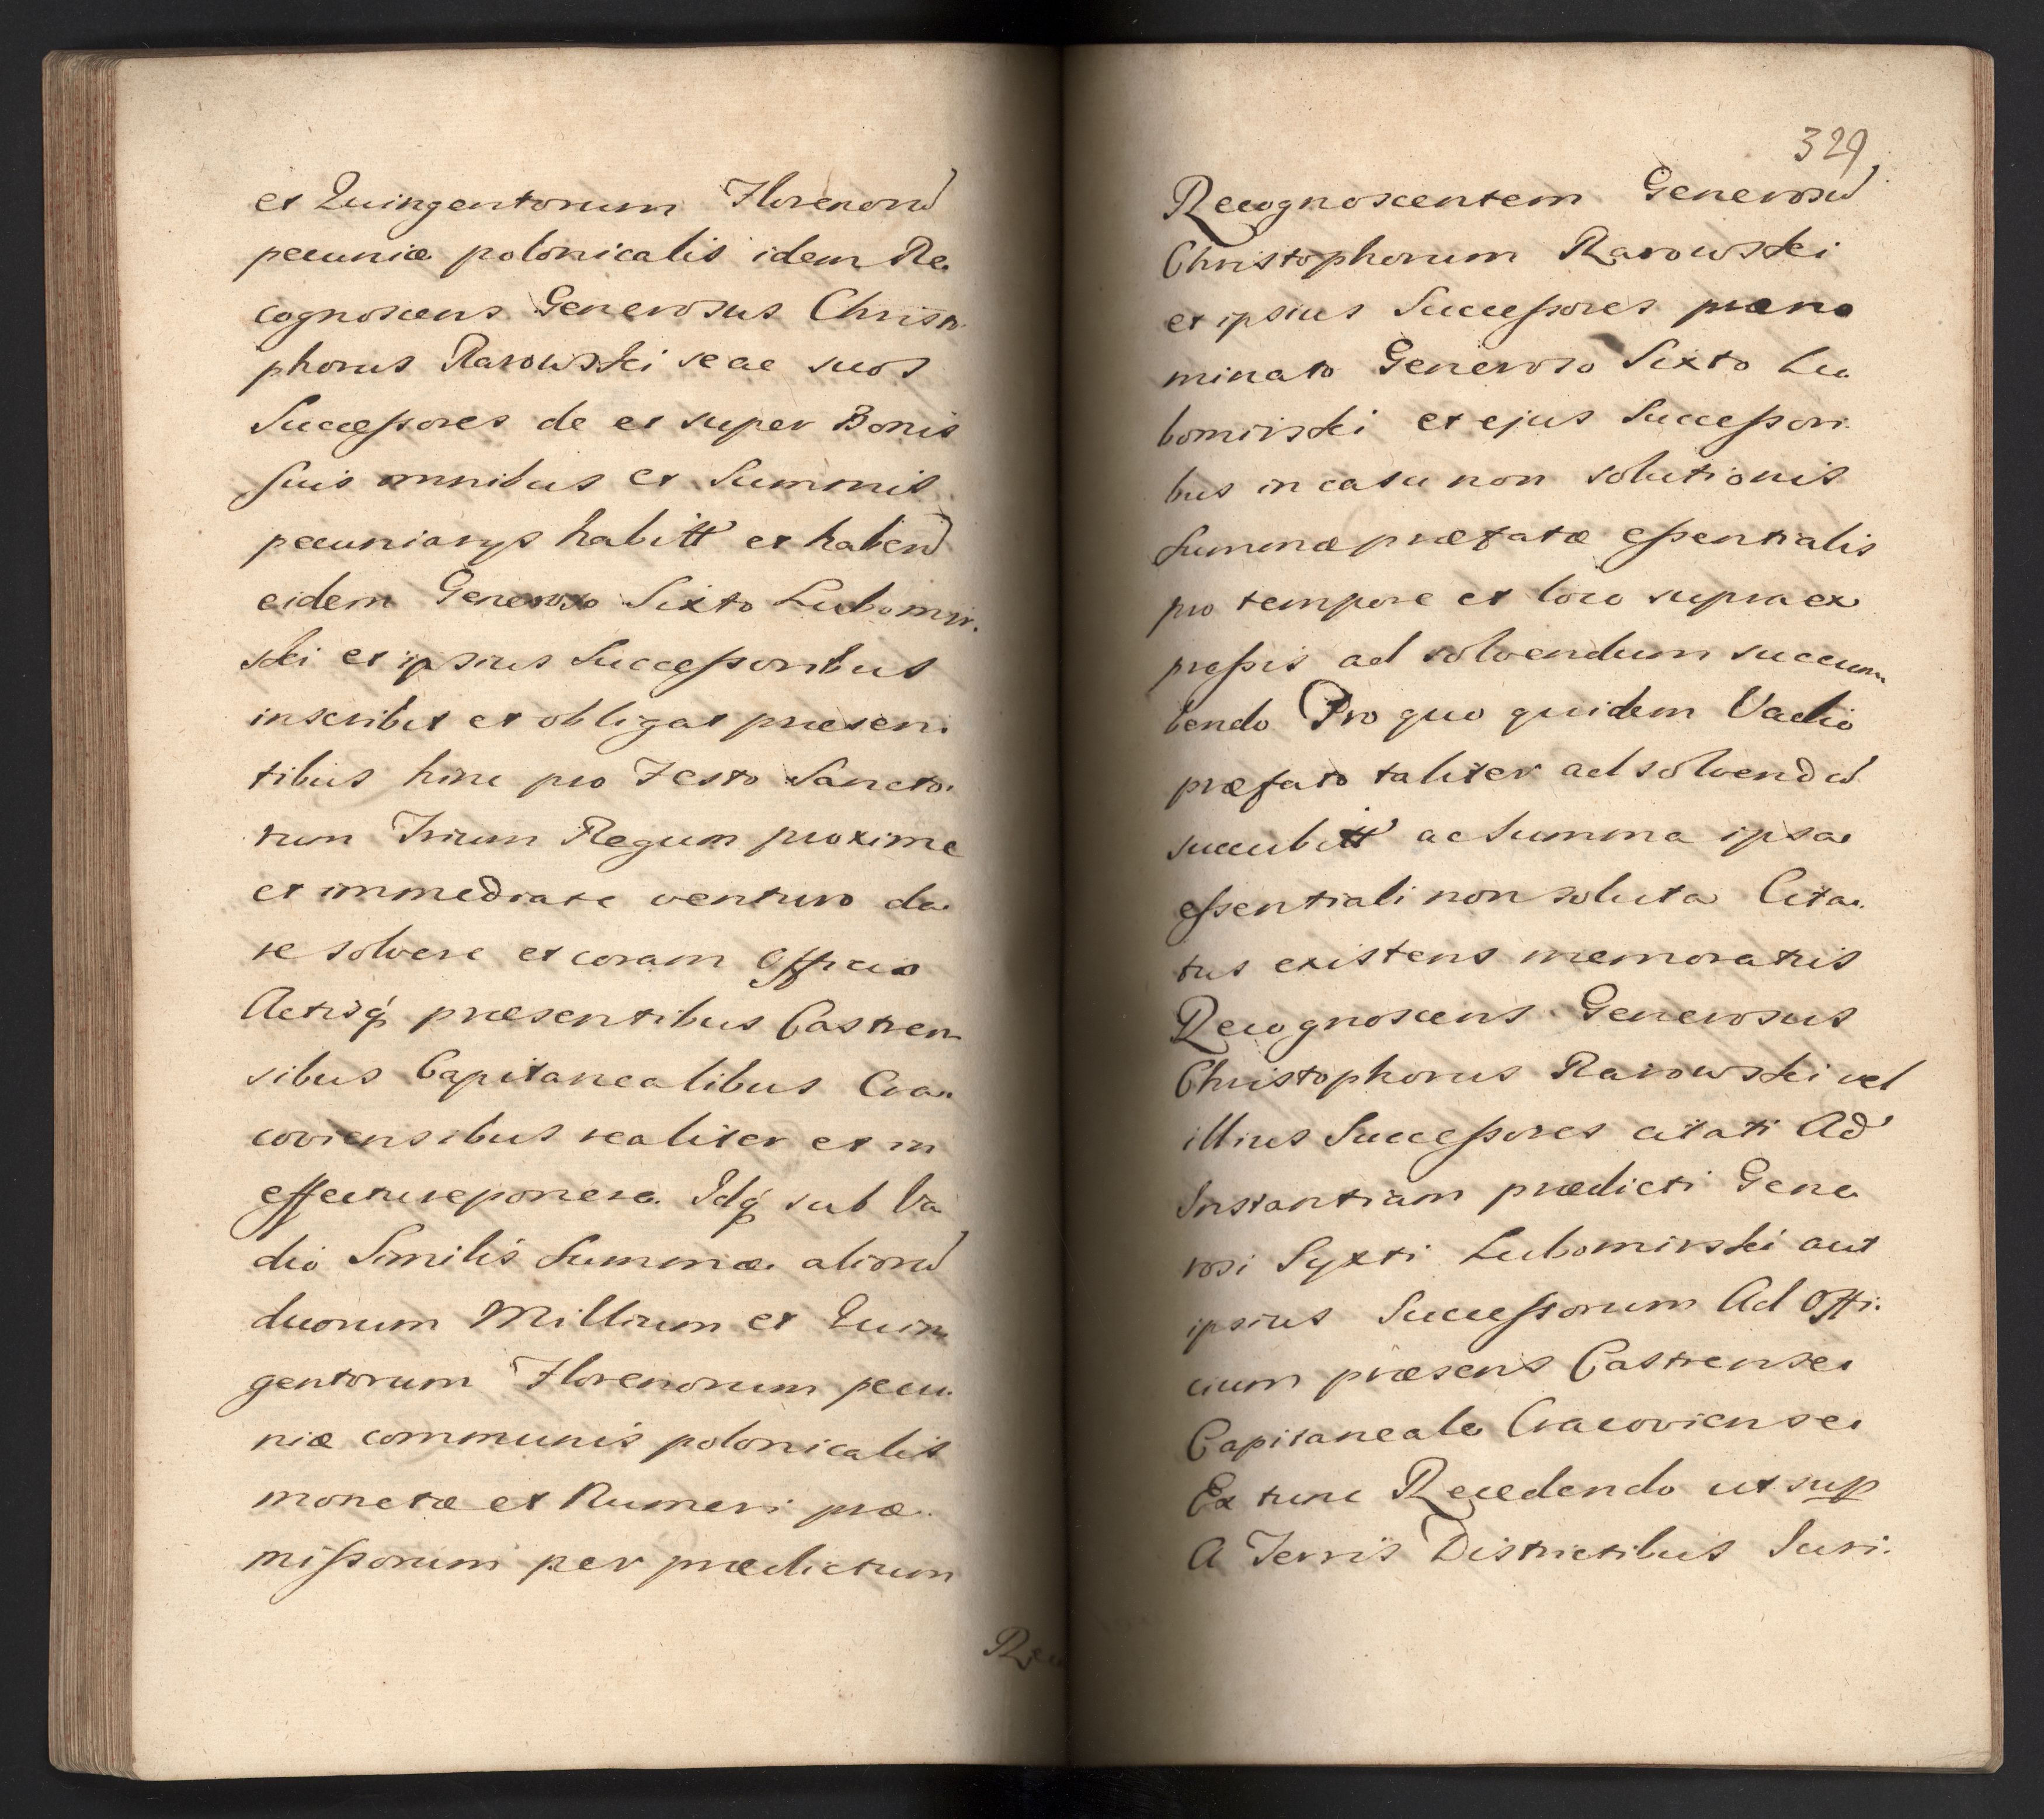 et Quingentorum Florenorũ
pecuniæ polonicalis idem Re.
cognoscens Generosus Christo.
phorus Rarowski se ac suos
Successores de et super Bonis
suis omnibus et Summis
pecuniarys habitt et habenđ
eidem Generoso Sixto Lubomir.
ski et ipsius Successoribus
inscribit et obligat præsen.
tibus hinc pro Festo Sancto.
rum Trium Regum proxime
et immediate venturo da.
re solvere et coram Officio
Actisq́ præsentibus Castren
sibus Capitanealibus Cra.
coviensibus realiter et in
effectu reponere. Idq́ sub Va
dio Similis Summæ alior̃u
duorum Millium et Quin
gentorum Florenorum pecu.
niæ communis polonicalis
monetæ et Numeri præ.
missorum per prædictum
Rec
329
Recognoscentem Generosũ
Christophorum Rarowski
et ipsius Successores præno
minato Generoso Sixto Lu.
bomirski et ejus Successori.
bus in casu non solutionis
Summæ præfatæ essentialis
pro tempore et loco supra ex
pressis ad solvendum succum
bendo Pro quo quidem Vadio
præfato taliter ad solvendũ
succubitt ac Summa ipsa
essentiali non soluta Cita.
tus existens memoratus
Recognoscens Generosus
Christophorus Rarowski vel
illius Successores citati Ad
Instantiam prædicti Gene
rosi Syxti Lubomirski aut
ipsius Successorum Ad Offi.
cium præsens Castrense
Capitaneale Cracoviense
Ex tunc Recedendo ut sup
A Terris Districtibus Juri.